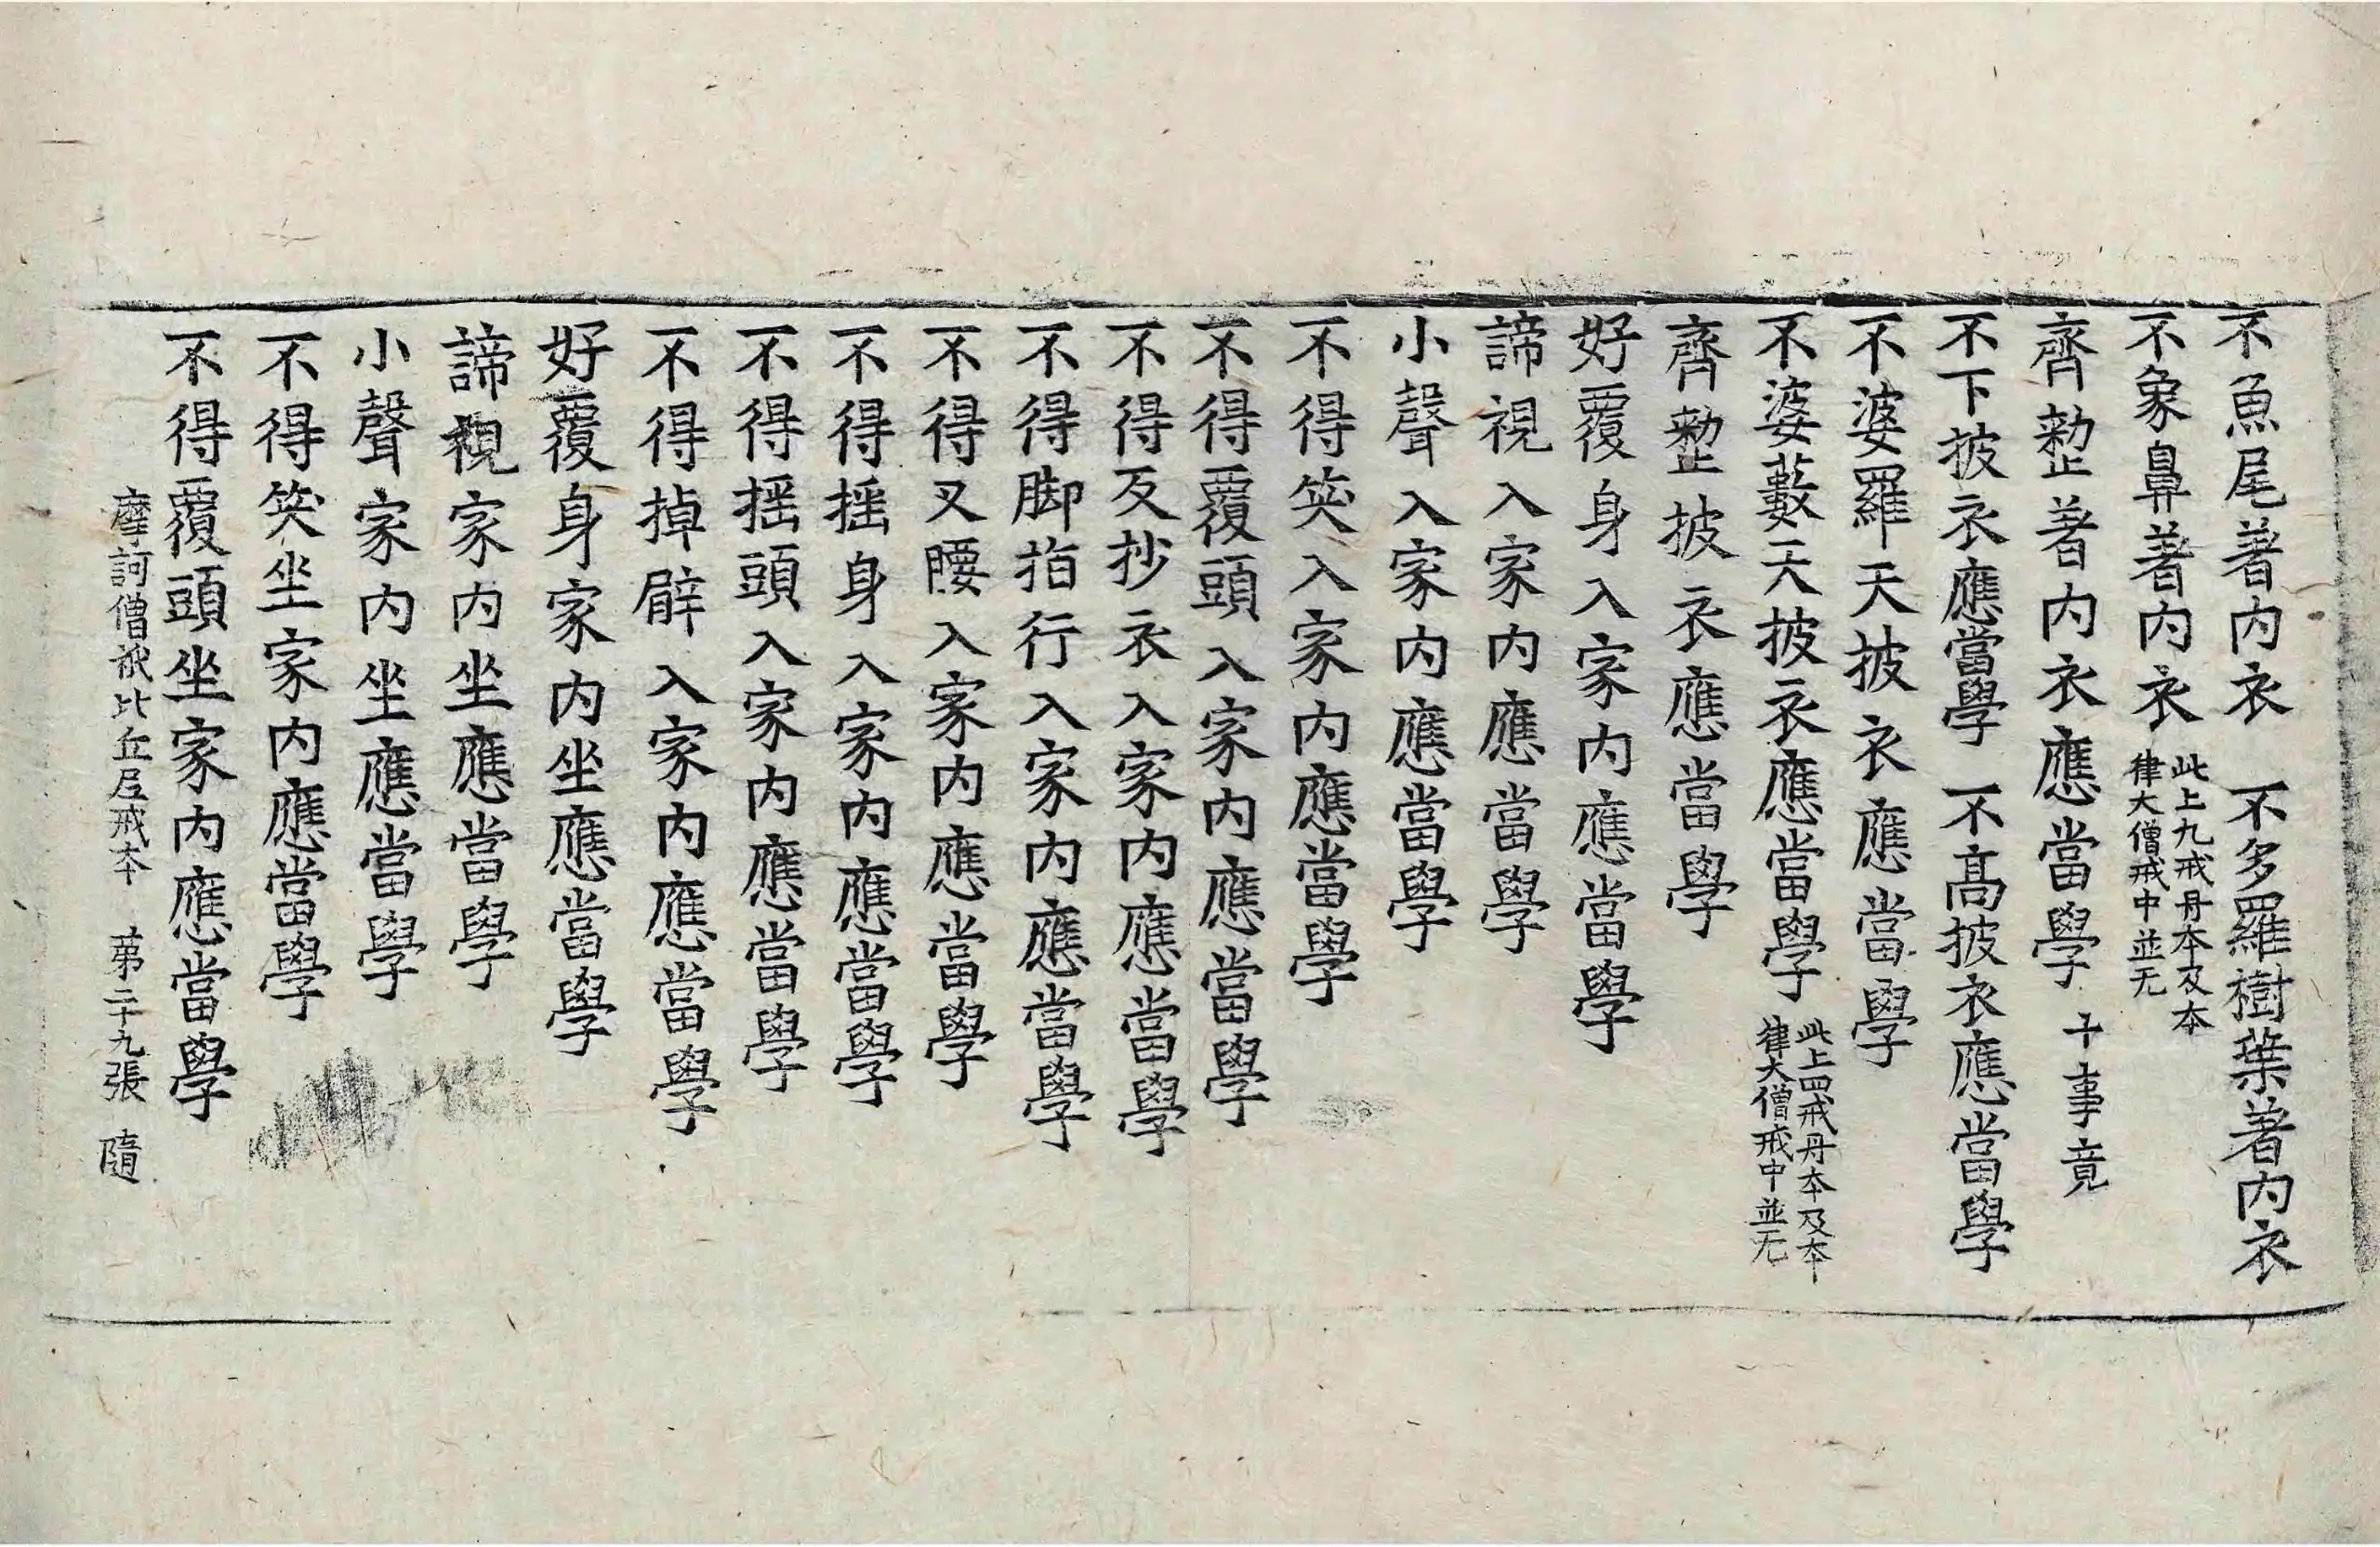 不魚尾著内衣　不多羅樹葉著内衣
不象鼻著内衣 此上九戒丹本及本律大僧戒中並无
齊整著内衣應當學 十事竟
不下披衣應當學　不髙披衣應當學
不婆羅天披衣應當學
不婆藪天披衣應當學 此上四戒丹本及本律大僧戒中並无
齊整披衣應當學
好覆身入家内應當學
諦視入家内應當學
小聲入家内應當學
不得笑入家内應當學
不得覆頭入家内應當學
不得反抄衣入家内應當學
不得脚指行入家内應當學
不得叉腰入家内應當學
不得揺身入家内應當學
不得揺頭入家内應當學
不得掉臂入家内應當學
好覆身家内坐應當學
諦視家内坐應當學
小聲家内坐應當學
不得笑坐家内應當學
不得覆頭坐家内應當學
摩訶僧祇比丘尼戒本　第二十九張　隨